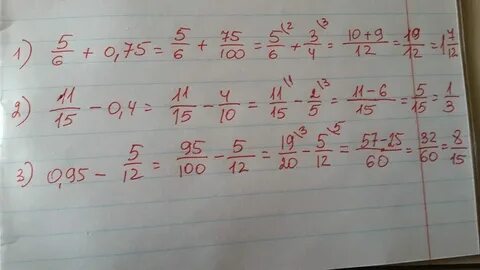 1) 5/6 + 0,75 = 5/6 + 75/100 = 5/6\2 + 3/4\3 = 10+9/12 = 19/12 = 1 7/12
2) 11/15 - 0,4 = 11/15 - 4/10 = 11/15\1 - 2/5\3 = 11-6/15 = 5/15 = 1/3
3) 0,95 - 5/12 = 95/100 - 5/12 = 19/20\3 - 5/12\5 = 57-25/60 = 32/60 = 8/15